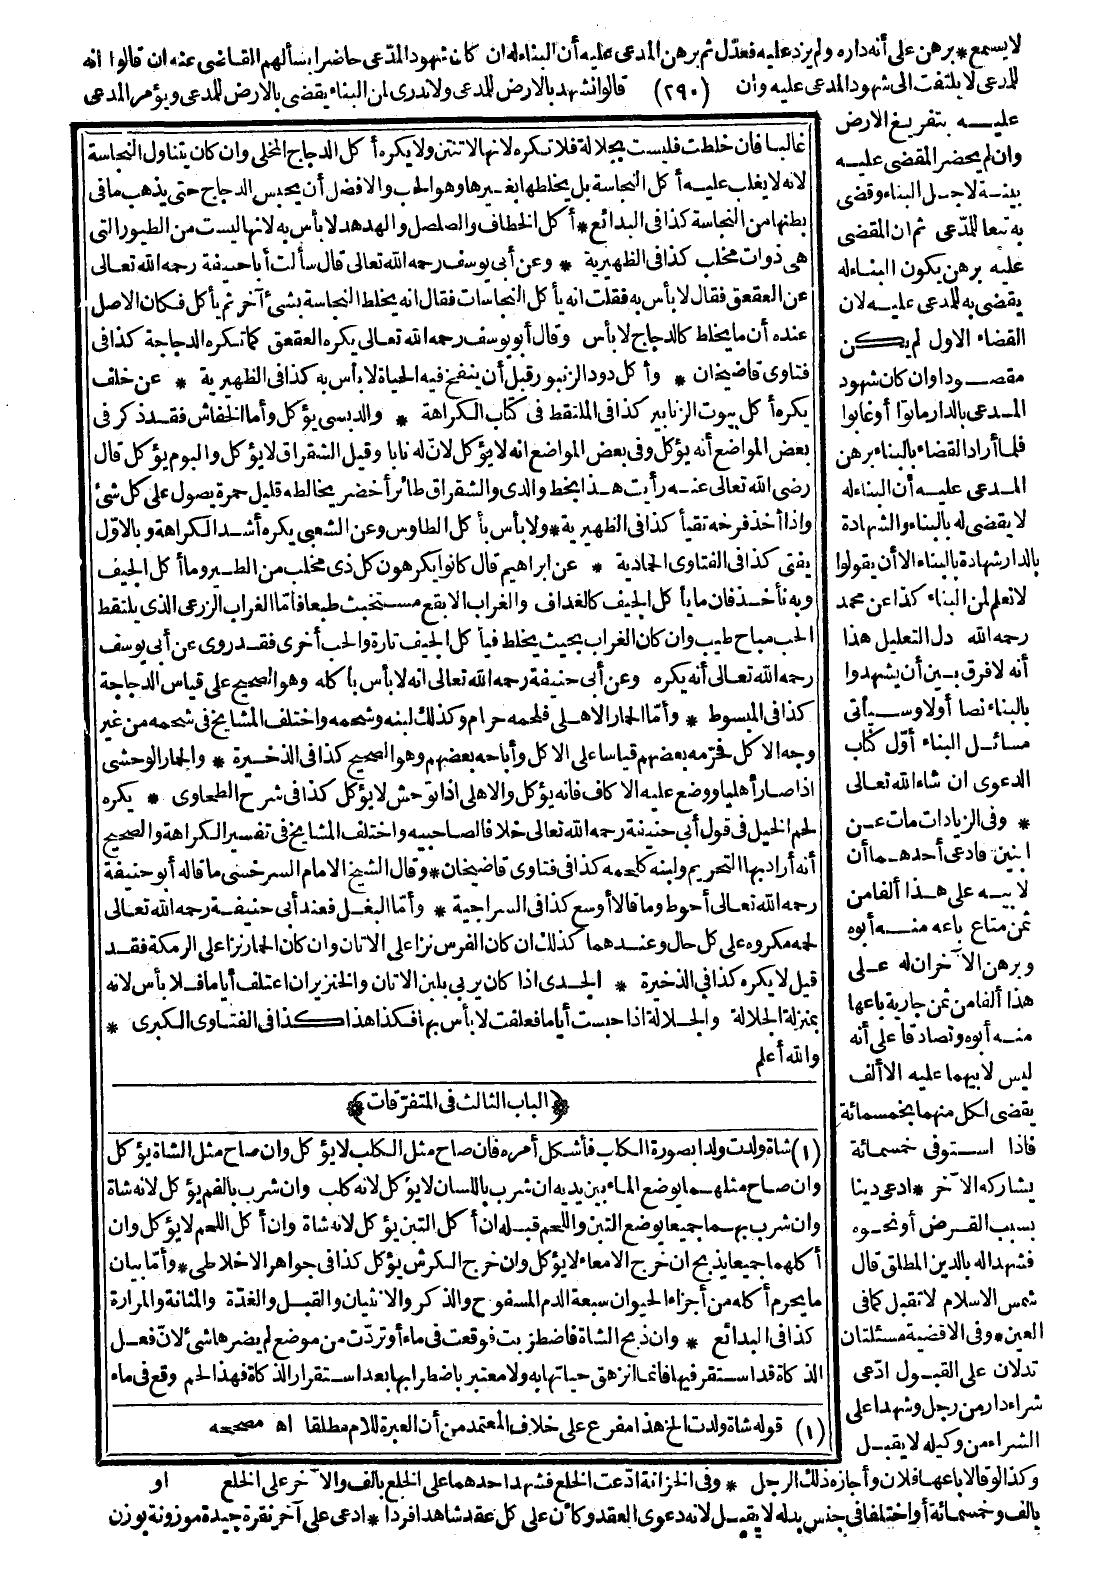 لا يسمع * برهن على أنه داره ولم يزد عليه فعدّل ثم برهن المدعى عليه أن البناء له ان كان شهود المدّعى حاضرا يسألهم القاضى عنه ان قالوا انه
للمدعى لا يلتفت الى شهود المدعى عليه وان (٢٩٠) قالوا نشهد بالارض للمدعى ولا ندرى لمن البناء يقضى بالارض للمدعى ويؤمر المدعى
عليه بتفريغ الارض
وان لم يحضر المقضى عليه
بينة لاجل البناء وقضى
به تبعا للمدّعى ثم ان المقضى
عليه برهن يكون البناء له
يقضى به للمدعى عليه لان
القضاء الاول لم يكن
مقصودا وان كان شهود
المدعى بالدار ماتوا أو غابوا
فلما أراد القضاء بالبناء برهن
المدعى عليه أن البناء له
لا يقضى له بالبناء والشهادة
بالدار شهادة بالبناء الا أن يقولوا
لا نعلم لمن البناء كذا عن محمد
رحمه الله دل التعليل هذا
أنه لا فرق بين أن يشهدوا
بالبناء نصا أولا وسيأتى
مسائل البناء أوّل كتاب
الدعوى ان شاء الله تعالى
* وفى الزيادات مات عن
ابنين فادعى أحدهما أن
لابيه على هذا ألفا من
ثمن متاع باعه منه أبوه
وبرهن الآخر ان له على
هذا ألفا من ثمن جارية باعها
منه أبوه وتصادقا على أنه
ليس لابيهما عليه الا ألف
يقضى لكل منهما بخمسمائة
فاذا استوفى خمسمائة
يشاركه الآخر * ادعى دينا
بسبب القرض أو نحوه
فشهدا له بالدين المطلق قال
شمس الاسلام لا تقبل كما فى
العين * وفى الاقضية مسئلتان
تدلان على القبول ادّعى
شراء دار من رجل وشهدا على
الشراء من وكيله لا يقبل
غالبا فان خلطت فليست بجلالة فلا تكره لانها لا تنتن ولا يكره أكل الدجاج المخلى وان كان يتناول النجاسة
لانه لا يغلب عليه أكل النجاسة بل يخلطها بغيرها وهو الحب والافضل أن يحبس الدجاج حتى يذهب ما فى
بطنها من النجاسة كذا فى البدائع * أكل الخطاف والصلصل والهدهد لا بأس به لانها ليست من الطيور التى
هى ذوات مخلب كذا فى الظهيرية * وعن أبى يوسف رحمه الله تعالى قال سألت أبا حنيفة رحمه الله تعالى
عن العقعق فقال لا بأس به فقلت انه يأكل النجاسات فقال انه يخلط النجاسة بشئ آخر ثم يأكل فكان الاصل
عنده أن ما يخلط كالدجاج لا بأس وقال أبو يوسف رحمه الله تعالى يكره العقعق كما تكره الدجاجة كذا فى
فتاوى قاضيخان * وأكل دود الزنبور قبل أن ينفخ فيه الحياة لا بأس به كذا فى الظهيرية * عن خلف
يكره أكل بيوت الزنابير كذا فى الملتقط فى كتاب الكراهة * والدبسى يؤكل وأما الخفاش فقد ذكر فى
بعض المواضع أنه يؤكل وفى بعض المواضع انه لا يؤكل لانّ له نابا وقيل الشقراق لا يؤكل والبوم يؤكل قال
رضى الله تعالى عنه رأيت هذا بخط والدى والشقراق طائر أخضر يخالطه قليل حمرة يصول على كل شئ
واذا أخذ فرخه تقيأ كذا فى الظهيرية * ولا بأس بأكل الطاوس وعن الشعبى يكره أشد الكراهة وبالاوّل
يفتى كذا فى الفتاوى الحمادية * عن ابراهيم قال كانوا يكرهون كل ذى مخلب من الطير وما أكل الجيف
وبه نأخذ فان ما يأكل الجيف كالغداف والغراب الابقع مستخبث طبعا فأمّا الغراب الزرعى الذى يلتقط
الحب مباح طيب وان كان الغراب بحيث يخلط فيأكل الجيف تارة والحب أخرى فقد روى عن أبى يوسف
رحمه الله تعالى أنه يكره وعن أبى حنيفة رحمه الله تعالى انه لا بأس بأكله وهو الصحيح على قياس الدجاجة
كذا فى المبسوط * وأمّا الحمار الاهلى فلحمه حرام وكذلك لبنه وشحمه واختلف المشايخ فى شحمه من غير
وجه الاكل فحرّمه بعضهم قياسا على الاكل وأباحه بعضهم وهو الصحيح كذا فى الذخيرة * والحمار الوحشى
اذا صار أهليا ووضع عليه الاكاف فانه يؤكل والاهلى اذا توحش لا يؤكل كذا فى شرح الطحاوى * يكره
لحم الخيل فى قول أبى حنيفة رحمه الله تعالى خلافا لصاحبيه واختلف المشايخ فى تفسير الكراهة والصحيح
أنه أراد بها التحريم ولبنه كلحمه كذا فى فتاوى قاضيخان * وقال الشيخ الامام السرخسى ما قاله أبو حنيفة
رحمه الله تعالى أحوط وما قالا أوسع كذا فى السراجية * وأمّا البغل فعند أبى حنيفة رحمه الله تعالى
لحمه مكروه على كل حال وعندهما كذلك ان كان الفرس نزا على الاتان وان كان الحمار نزا على الرمكة فقد
قيل لا يكره كذا فى الذخيرة * الجدى اذا كان يربى بلبن الاتان والخنزير ان اعتلف أياما فلا بأس لانه
بمنزلة الجلالة والجلالة اذا حبست أياما فعلفت لا بأس بها فكذا هذا كذا فى الفتاوى الكبرى *
والله أعلم
﴿الباب الثالث فى المتفرّقات﴾
(١) شاة ولدت ولدا بصورة الكلب فأشكل أمره فان صاح مثل الكلب لا يؤكل وان صاح مثل الشاة يؤكل
وان صاح مثلهما يوضع الماء بين يديه ان شرب باللسان لا يؤكل لانه كلب وان شرب بالفم يؤكل لانه شاة
وان شرب بهما جميعا يوضع التبن واللحم قبله ان أكل التبن يؤكل لانه شاة وان أكل اللحم لا يؤكل وان
أكلهما جميعا يذبح ان خرج الامعاء لا يؤكل وان خرج الكرش يؤكل كذا فى جواهر الاخلاطى * وأمّا بيان
ما يحرم أكله من أجزاء الحيوان سبعة الدم المسفوح والذكر والانثيان والقبل والغدّة والمثانة والمرارة
كذا فى البدائع * وان ذبح الشاة فاضطربت فوقعت فى ماء أو تردّت من موضع لم يضرها شئ لانّ فعل
الذكاة قد استقر فيها فانما انزهق حياتها به ولا معتبر باضطرابها بعد استقرار الذكاة فهذا لحم وقع فى ماء
(١) قوله شاة ولدت الخ هذا مفرع على خلاف المعتمد من أن العبرة للام مطلقا اه مصححه
وكذا لو قالا باعها فلان وأجازه ذلك الرجل * وفى الخزانة ادّعت الخلع فشهد احدهما على الخلع بالف والآخر على الخلع او
بالف وخمسمائة أو اختلفا فى جنس بدله لا يقبل لانه دعوى العقد وكأن على كل عقد شاهدا فردا * ادعى على آخر نقرة جيدة موزونة بوزن